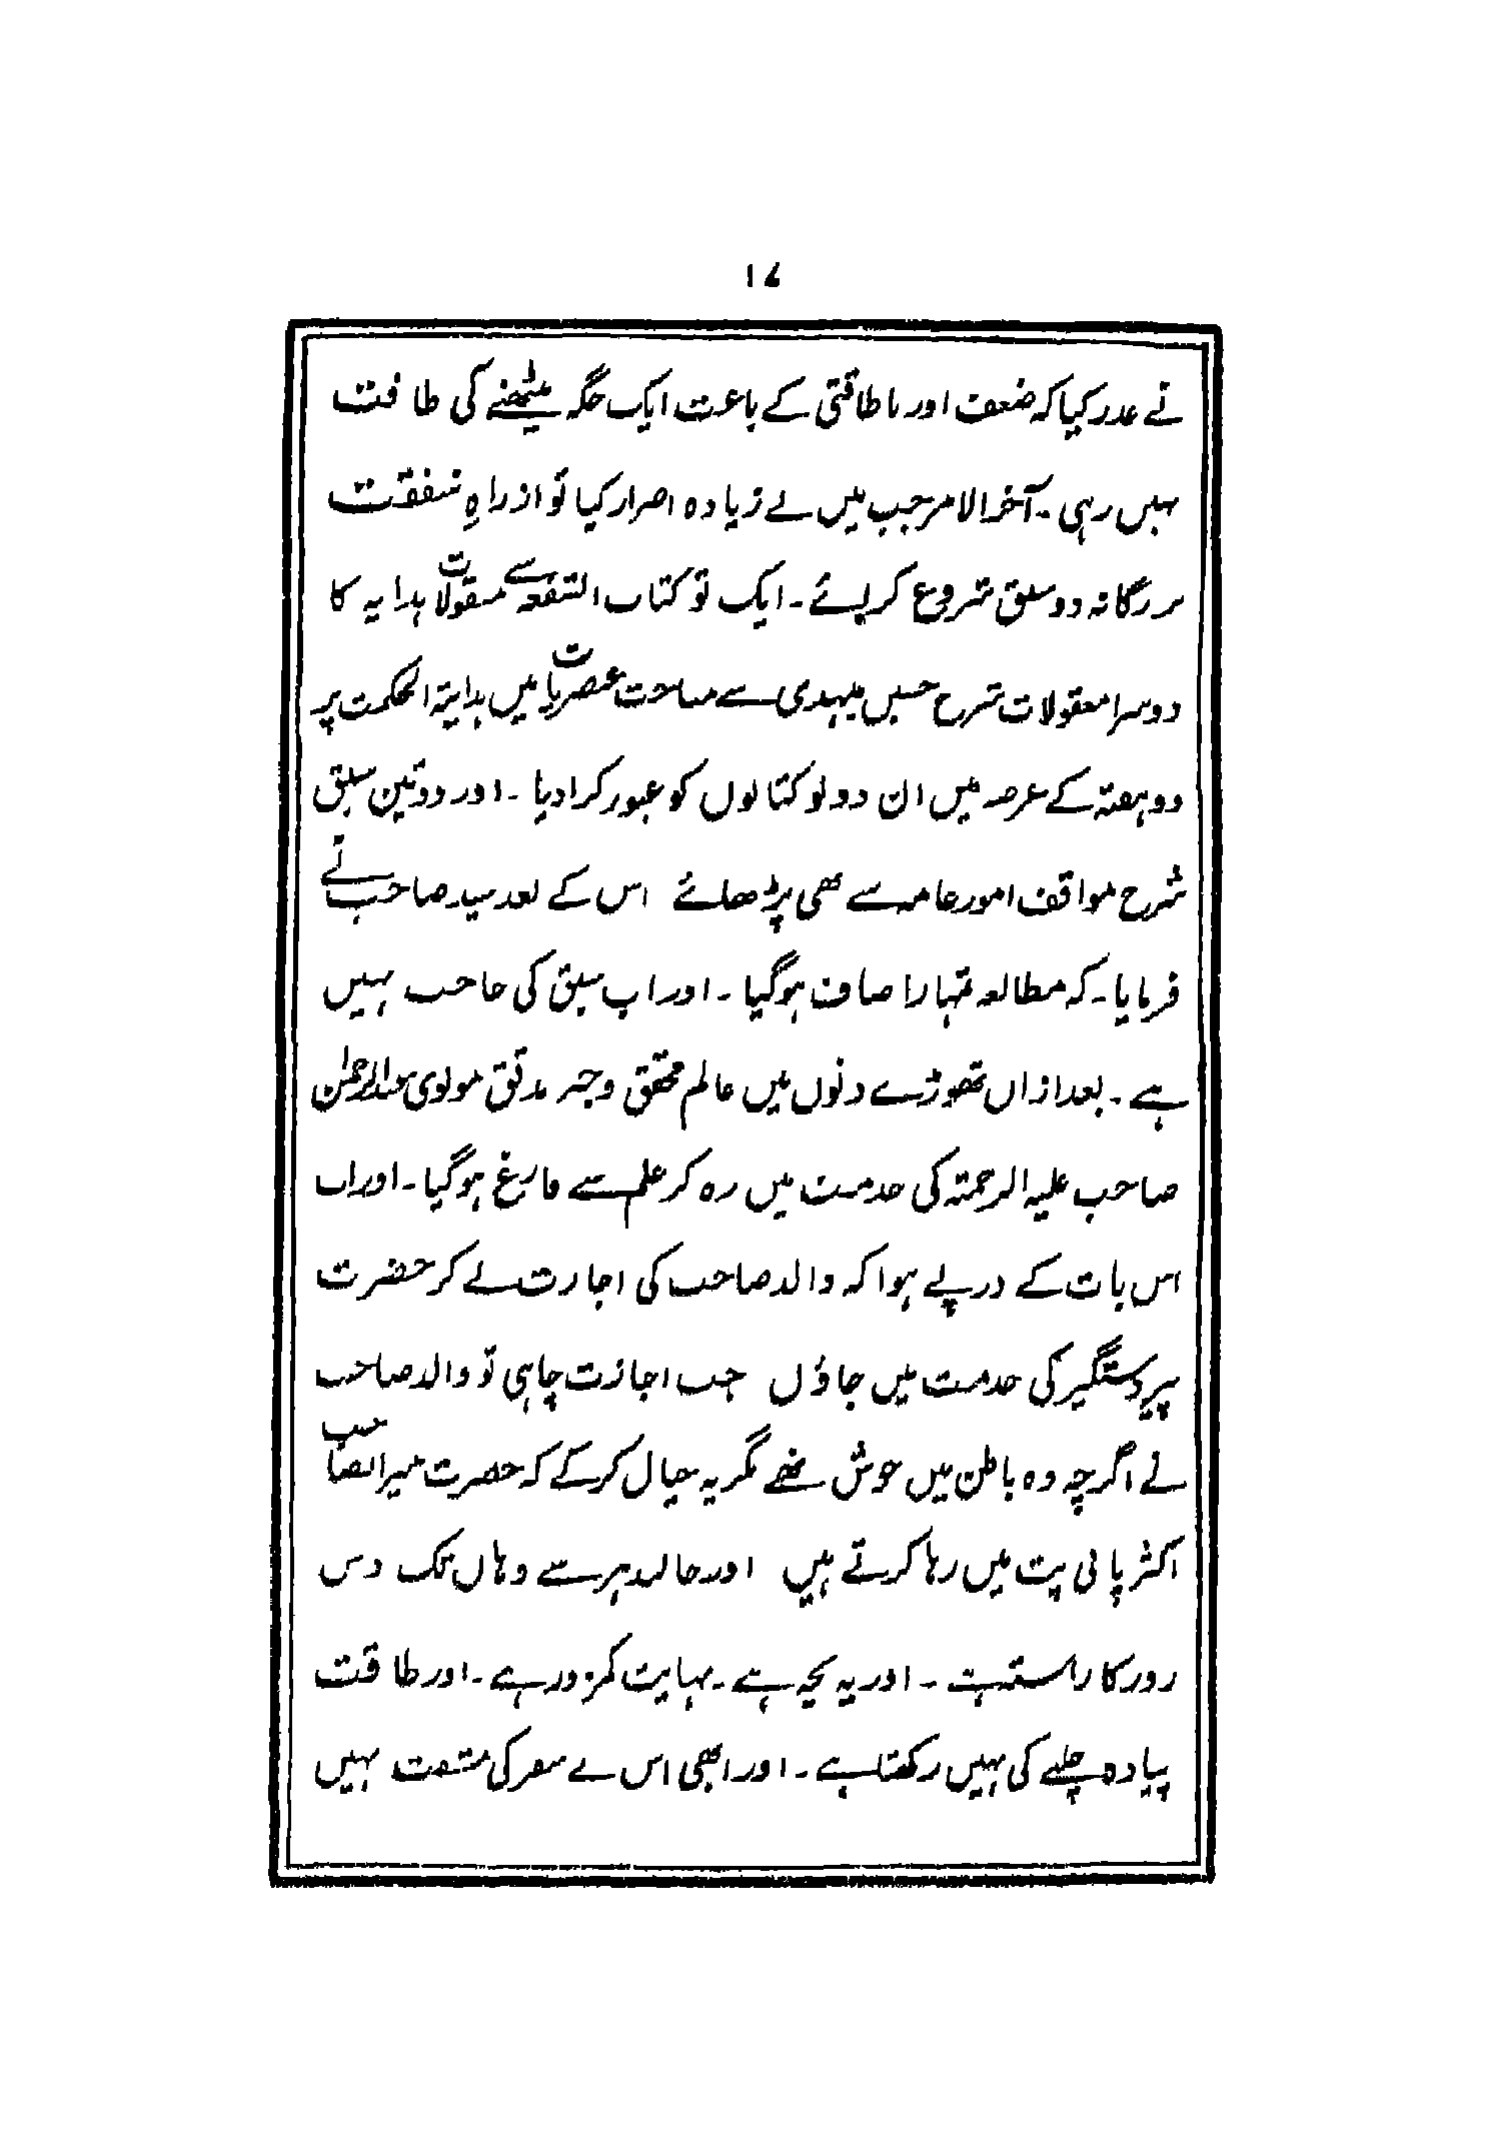 ۱۷
نے عذر کیا کہ ضعف اور ناطاقتی کے باعث ایک جگہ بیٹھنے کی طاقت
نہیں رہی ۔ آخر الامر جب میں نے زیادہ اصرار کیا تو از راہِ شفقت
بزرگانہ دو سبق شروع کر لئے ۔ ایک تو کتاب الشفعہ سے منقولات ہدایہ کا
دوسرا معقولات شرح حسین میبدی سے مباحث عنصریات میں ہدایۃ الحکمت پر
دو ہفتہ کے عرصہ میں ان دونو کتابوں کو عبور کرا دیا ۔ اور دو تین سبق
شرح مواقف امور عامہ سے بھی پڑھائے اس کے بعد سید صاحب نے
فرمایا ۔ کہ مطالعہ تمہارا صاف ہوگیا ۔ اور اب سبق کی حاجت نہیں
ہے ۔ بعد ازاں تھوڑے دنوں میں عالم محقق وحبر مدقق مولوی عبدالرحمٰن
صاحب علیہ الرحمتہ کی خدمت میں رہ کر علم سے فارغ ہوگیا ۔ اور اب
اس بات کے درپے ہوا کہ والد صاحب کی اجازت لے کر حضرت
پیر دستگیر کی خدمت میں جاؤں جب اجازت چاہی تو والد صاحب
نے اگرچہ وہ باطن میں خوش تھے مگر یہ خیال کرکے کہ حضرت میرانصاحب
اکثر پانی پت میں رہا کرتے ہیں اور جالندہر سے وہاں تک دس
روز کا راستہ ہے ۔ اور یہ بچہ ہے ۔ نہایت کمزور ہے ۔ اور طاقت
پیادہ چلنے کی نہیں رکھتا ہے ۔ اور ابھی اس نے سفر کی مشقت نہیں